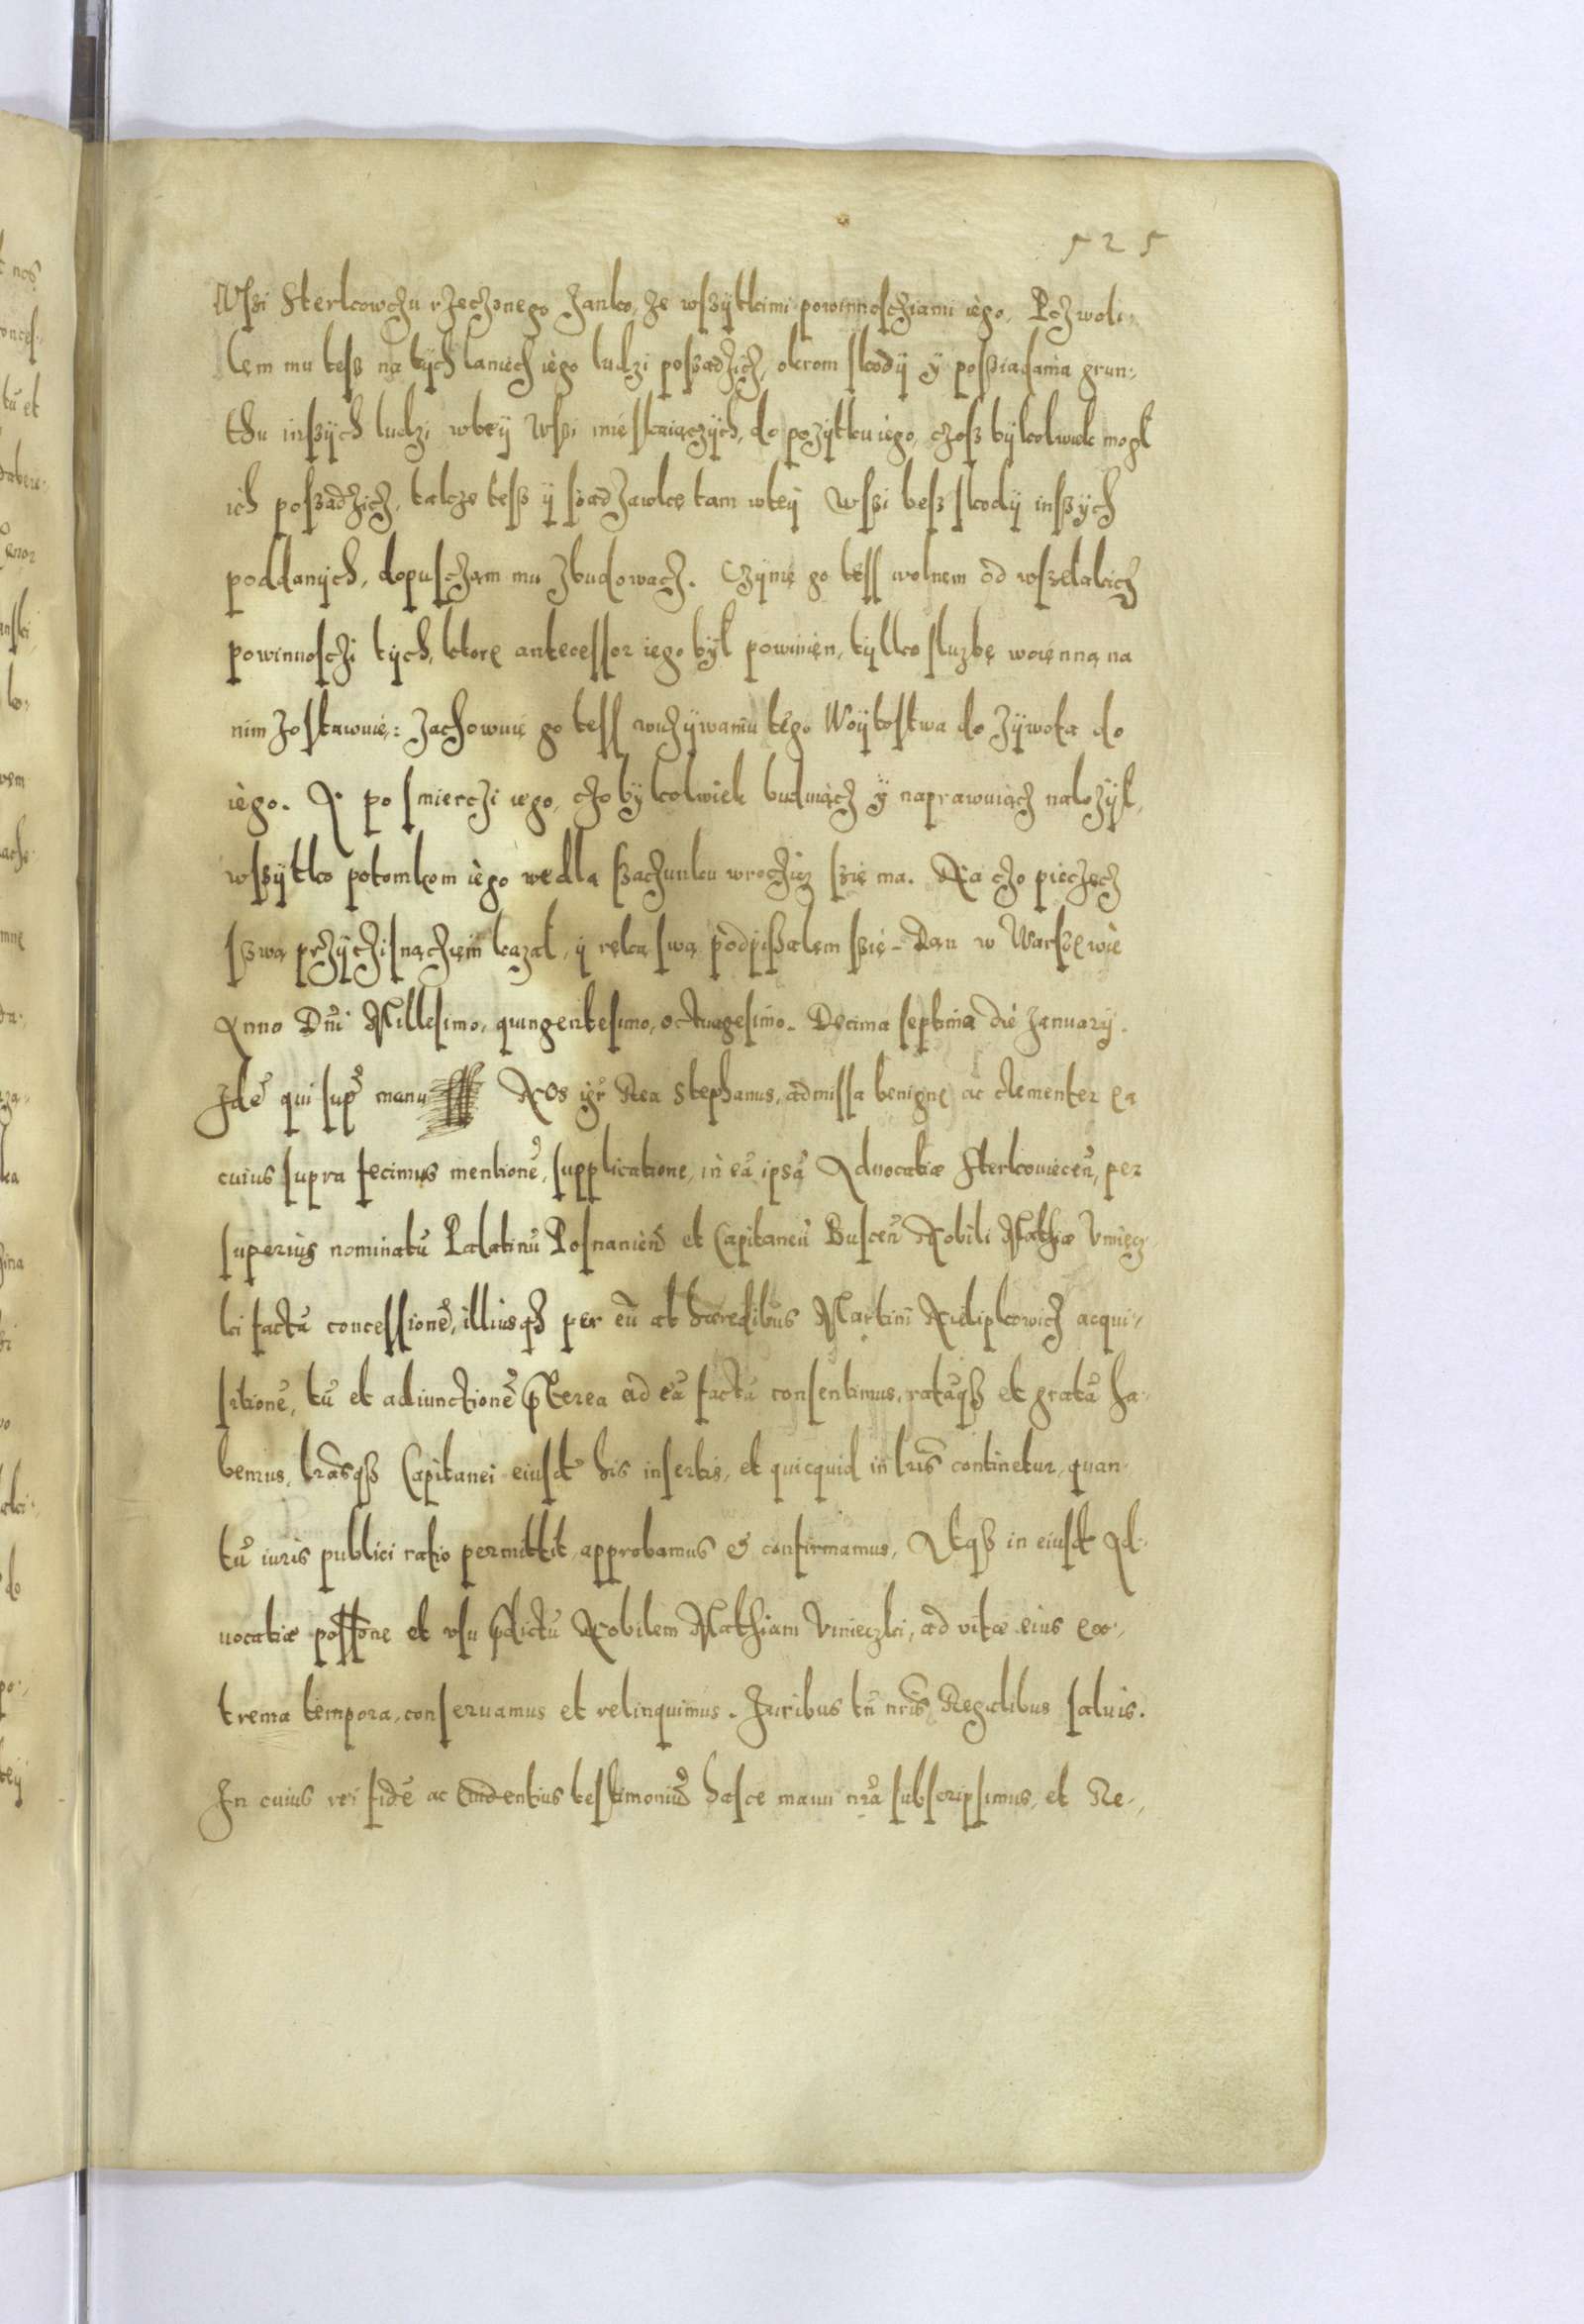 525
Wſzi Sterkowczu rzeczonego Janko, ze wſzytkimi powinnoſcziami iego. Pozwoli-
łem mu teſz na tych laniech iego ludzi poſzadzicz, okrom ſkody y poſſiadania grun-
thu inſzych ludzi wtey Wſzi mieſkaiączych, do pozytku iego, czoſz bykolwiek mogł
ich poſzadzicz, takze teſz y ſadzawkę tam wtey Wſzi beſz ſkody inſzych
poddanych, dopuſczam mu zbudowacz. Czynię go teſſ wolnem od wſzelakich
powinnoſczi tych, ktore anteceſſor iego był powinien, tylko ſluzbę woięnną na
nim zoſtawuię: zachowuię go teſſ wuzywaniu tego Woytoſtwa do zywota do
iego. A po ſmierczi iego, czo by kolwiek buduiącz y naprawuiącz nalozył,
wſzytko potomkom iego wedla ſzachunku wroczicz ſzię ma. Na czo pieczęcz
ſzwą przycziſnączięm kazał, y ręką ſwą podpiſzalem ſzię. Dan w Warſzewie
Anno Dni Milleſimo, quingenteſimo, octuageſimo. Decima ſeptima die January.
Idē qui ſup manu Nos igr Rex Stephanus, admiſſa benigne ac clementer ea
cuius ſupra fecimus mentionē, ſupplicatione, in eā ipſā Aduocatiæ Sterkouiecen, per
ſuperius nominatū Palatinū Poſnanien et Capitaneū Buſcen Nobili Mathiæ Vniecz
ki factā conceſſionē, illiusqȝ per eū ab hæredibus Martini Nielipkowicz acqui-
ſitionē, tū et adiunctionē pterea ad eā factā conſentimus, ratāqȝ et gratā ha-
bemus, lrāsqȝ Capitanei eiuſd his inſertis, et quicquid in lris continetur, quan-
tū iuris publici ratio permittit, approbamus & confirmamus, Atqȝ in eiuſd Ad-
uocatiæ poſſone et vſu pdictū Nobilem Mathiam Vnieczki, ad vitæ eius ex-
trema tempora, conſeruamus et relinquimus. Iuribus tn nris Regalibus ſaluis.
In cuius rei fidē ac euidentius teſtimoniū haſce manu nrā ſubſcripſimus, et Re-